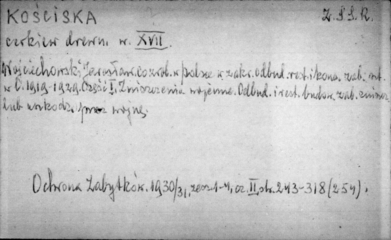 KOŚCISKA Z.S.S.R.
cerkiew drewn. w. XVII.
Wojciechowski Jarosław. co zrob. w Polsce w zakr. odbud. rest. i kons. zab. szt.
w l. 1919-1929. Część I. Zniszczenia wojenne. Odbud. i rest. budow. zab. zniszcz.
lub uszkodz. przez wojnę.
Ochrona Zabytków. 1930/31, zesz. 1-4, cz. II, str. 243-318 (254).